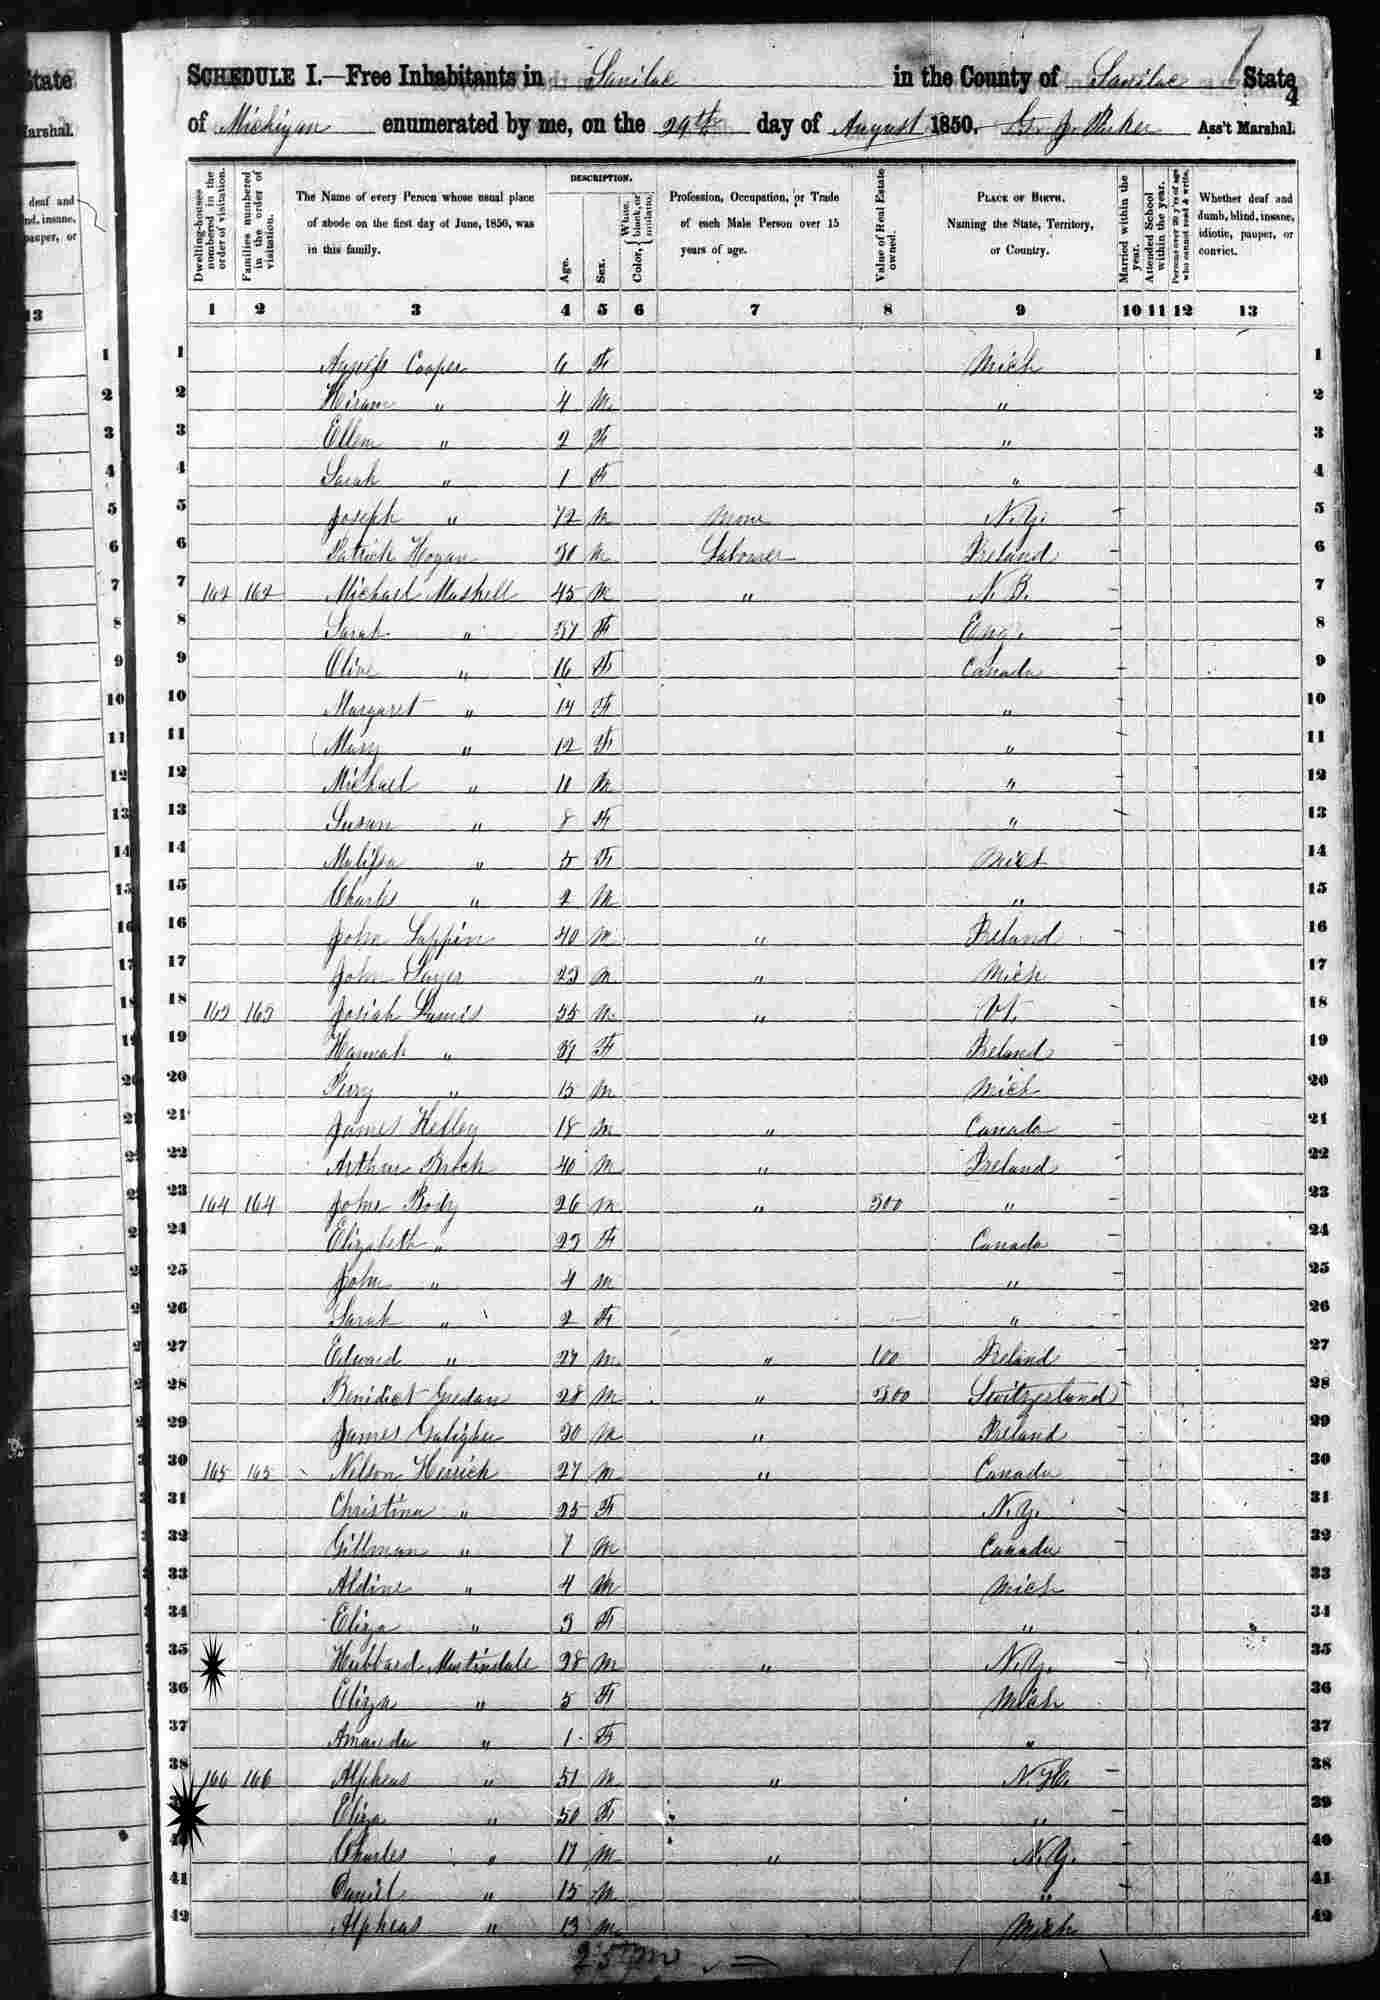 State
Marshal.
deaf and
ind, insane,
pauper, or
13
SCHEDULE I.—Free Inhabitants in Sanilac in the County of Sanilac State
4
of Michigan enumerated by me, on the 29th day of August 1850. G. J. Parker Ass't Marshal.
Dwelling-houses numbered in the order of visitation.
Families numbered in the order of visitation.
The Name of every Person whose usual place of abode on the first day of June, 1850, was in this family.
DESCRIPTION.
Age.
Sex.
Color, { White, black, or mulatto.
Profession, Occupation, or Trade of each Male Person over 15 years of age.
Value of Real Estate owned.
PLACE OF BIRTH. Naming the State, Territory, or Country.
Married within the year.
Attended School within the year.
Persons over 20 y'rs of age who cannot read & write.
Whether deaf and dumb, blind, insane, idiotic, pauper, or convict.
1 2 3 4 5 6 7 8 9 10 11 12 13
1 Cooper 6 F Mich 1
2 Hiram " 4 M " 2
3 Ellen " 2 F " 3
4 Sarah " 1 F " 4
5 Joseph " 72 M None N.Y. 5
6 Patrick Hogan 30 M Labourer Ireland 6
7 162 162 Michael Mashell 45 M " N.B. 7
8 Sarah " 37 F Eng. 8
9 Olive " 16 F Canada 9
10 Margaret " 14 F " 10
11 Mary " 12 F " 11
12 Michael " 11 M " 12
13 Susan " 8 F " 13
14 Malissa " 5 F Mich 14
15 Charles " 2 M " 15
16 John Lappin 40 M " Ireland 16
17 John 23 M " Mich 17
18 163 163 Josiah 55 M " Vt. 18
19 Hannah " 39 F Ireland 19
20 Perry " 15 M Mich 20
21 James 18 M " Canada 21
22 Arthur 40 M " Ireland 22
23 164 164 John Body 26 M " 300 " 23
24 Elizabeth " 23 F Canada 24
25 John " 4 M " 25
26 Sarah " 2 F " 26
27 Edward " 27 M " 100 Ireland 27
28 Benidict 28 M " 300 Switzerland 28
29 James Galigher 30 M " Ireland 29
30 165 165 Nelson Herrick 27 M " Canada 30
31 Christina " 25 F N.Y. 31
32 Gillman " 7 M Canada 32
33 Aldine " 4 M Mich 33
34 Eliza " 3 F " 34
35 Hubbard Martindale 28 M " N.Y. 35
36 Eliza " 5 F Mich 36
37 Amanda " 1 F " 37
38 166 166 Alpheus " 51 M " N.H. 38
39 Eliza " 50 F " 39
40 Charles " 17 M " N.Y. 40
41 Daniel " 15 M " 41
42 Alpheus " 13 M Mich 42